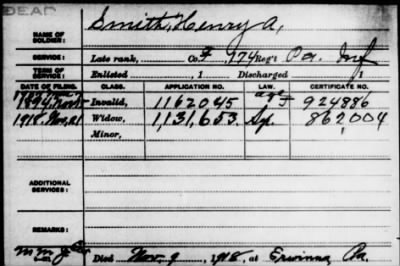 DEAD
NAME OF SOLDIER: Smith, Henry A,
SERVICE: Late rank, Co. F, 174 Reg't Pa. Inf
TERM OF SERVICE: Enlisted , 1 Discharged , 1
DATE OF FILING. CLASS. APPLICATION NO. LAW. CERTIFICATE NO.
1894, Nov Invalid, 1162045 924886
1918. Nov, 21 Widow, 1,131,653. 862,004
Minor,
ADDITIONAL SERVICES:
REMARKS:
Died Nov. 9, 1918, at Erwinna Pa.